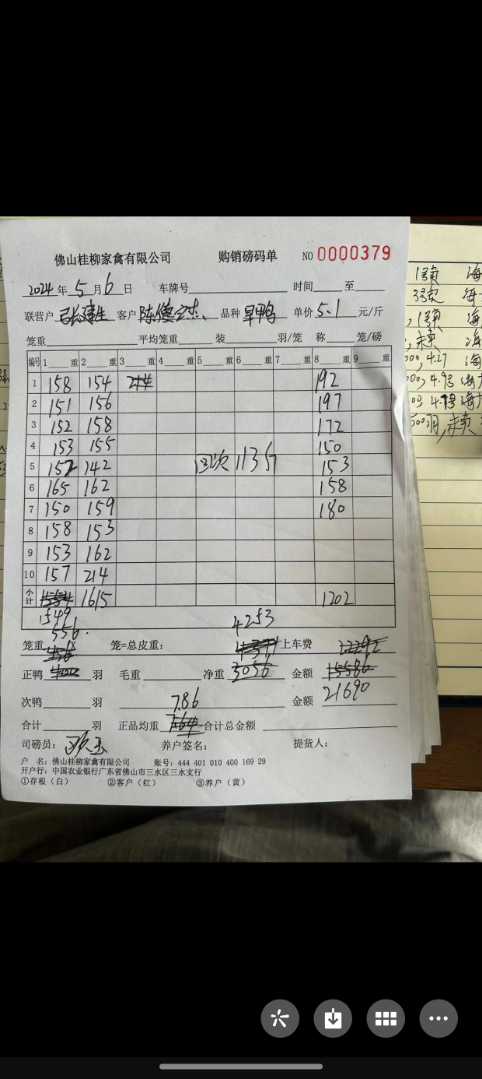 佛山桂柳家禽有限公司 购销磅码单 NO 0000379
2024年5月6日 车牌号 时间 至
联营户 客户 陈俊杰 品种 旱鸭 单价 5.1 元/斤
笼重 平均笼重 装 羽/笼 称 笼/磅
编号 1 重 2 重 3 重 4 重 5 重 6 重 7 重 8 重 9 重
1 158 154 192
2 151 156 197
3 152 158 172
4 153 155 150
5 152 142 回次 113 153
6 165 162 158
7 150 159 180
8 158 153
9 153 162
10 157 214
小计 1615 1202
1549
556. 4253
笼重 笼=总皮重: 上车费
正鸭 羽 毛重 净重 3056 金额 15586
21690
次鸭 羽 7.86 金额
合计 羽 正品均重 7.64 合计总金额
司磅员: 养户签名: 提货人:
户 名:佛山桂柳家禽有限公司 账号:444 401 010 400 169 29
开户行:中国农业银行广东省佛山市三水区三水支行
①存根(白) ②客户(红) ③养户(黄)